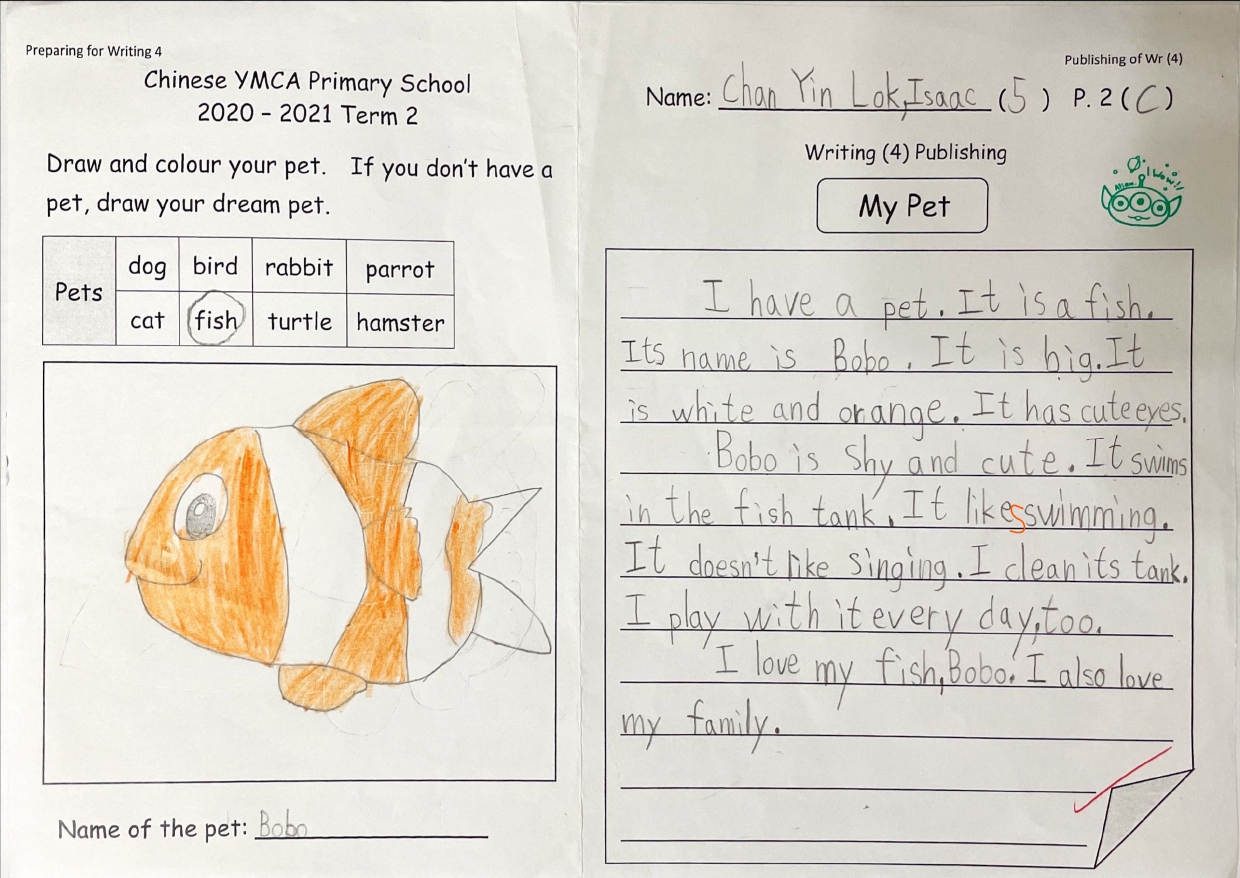 Preparing for Writing 4
Chinese YMCA Primary School
2020 – 2021 Term 2
Draw and colour your pet. If you don't have a
pet, draw your dream pet.
Pets
dog bird rabbit parrot
cat fish turtle hamster
Name of the pet: Bobo
Publishing of Wr (4)
Name: Chan Yin Lok,Isaac (5) P. 2 (C)
Writing (4) Publishing
My Pet
I have a pet. It is a fish.
Its name is Bobo. It is big. It
is white and orange. It has cute eyes.
Bobo is shy and cute. It swims
in the fish tank. It likes swimming.
It doesn't like singing. I clean its tank.
I play with it every day, too.
I love my fish, Bobo. I also love
my family.